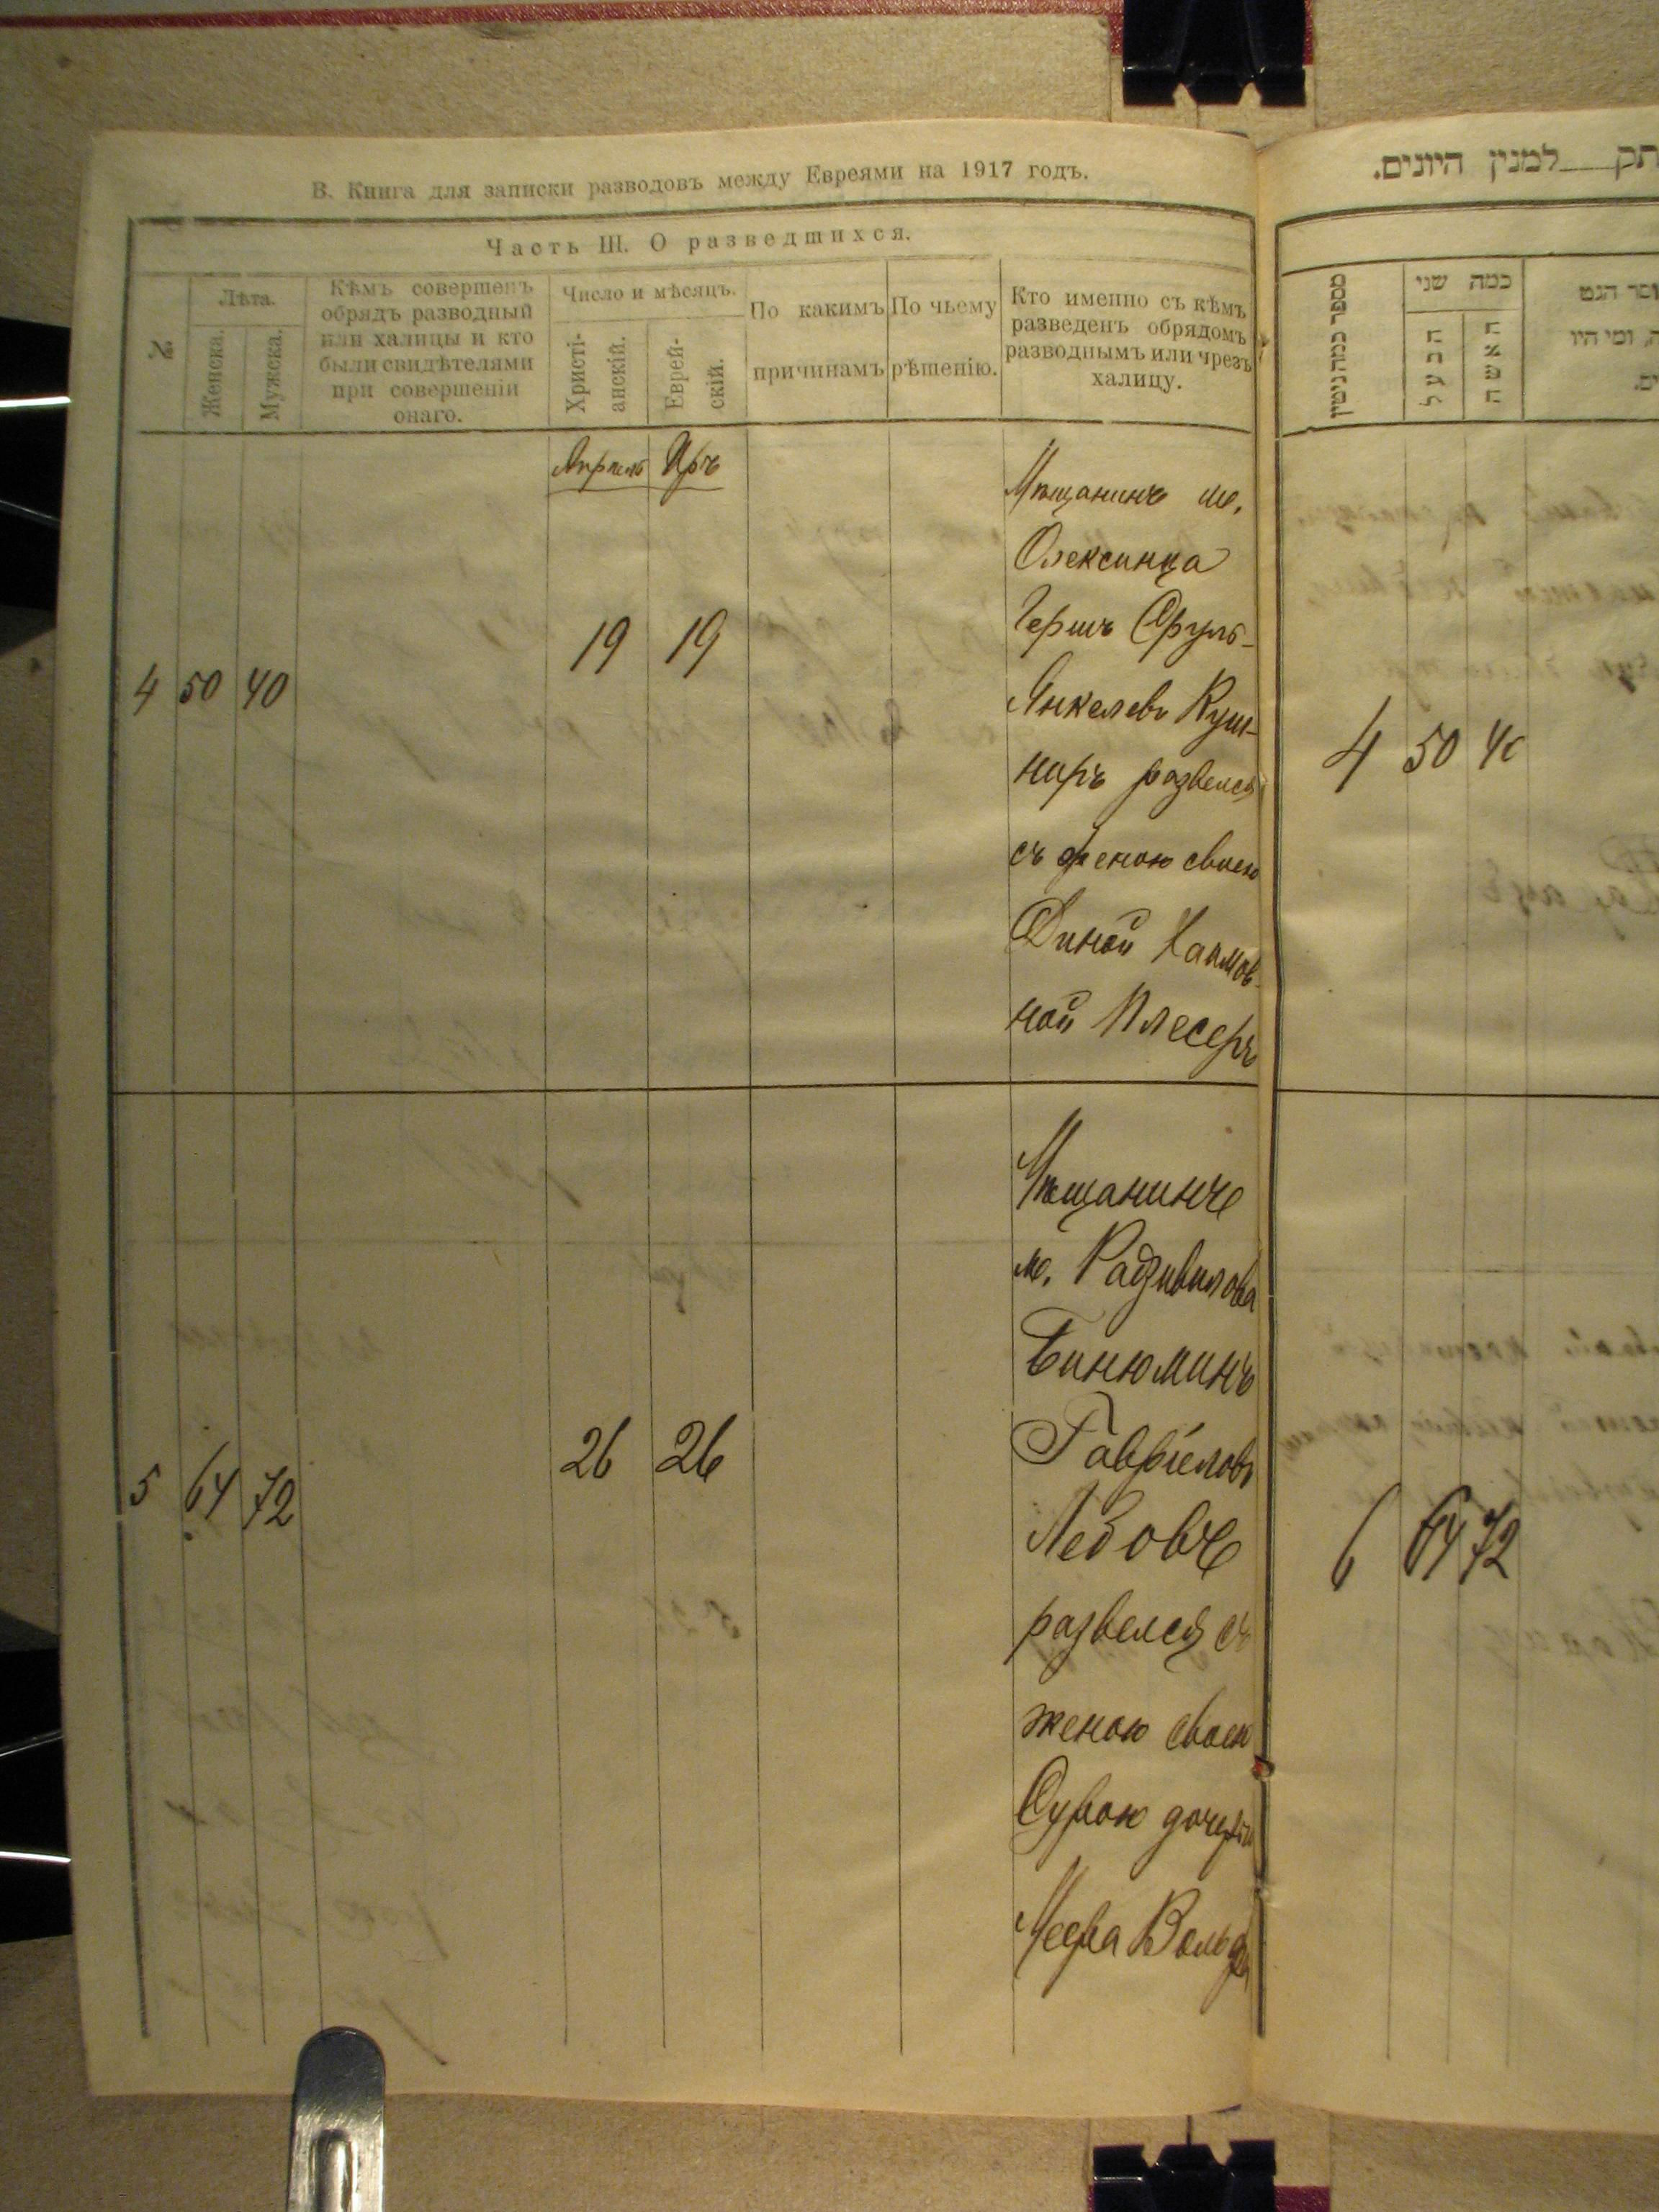 В. Книга для записки разводовъ между Евреями на 1917 годъ.
Часть III. О разведшихся.
№
Лѣта.
Женска.
Мужска.
Кѣмъ совершенъ
обрядъ разводный
или халицы и кто
были свидѣтелями
при совершеніи
онаго.
Число и мѣсяцъ.
Христі-
анскій.
Еврей-
скій.
По какимъ
причинамъ
По чьему
рѣшенію.
Кто именно съ кѣмъ
разведенъ обрядомъ
разводнымъ или чрезъ
халицу.
Апрель Иръ
4 50 40 19 19
Мѣщанинъ м.
Олексинца
Гершъ Сруль-
Янкелевъ Куш-
ниръ развелся
съ женою своею
Диной Хаимов-
ной Плесеръ
5 64 72 26 26
Мѣщанинъ
м. Радзивилова
Бинюминъ
Гавріеловъ
Ледовъ
развелся съ
женою своею
Сурою дочерью
Меера Вольфа
למנין היונים.
מספר כמה גיטין
כמה שני
הבעל
האשה
4 50 40
6 64 72